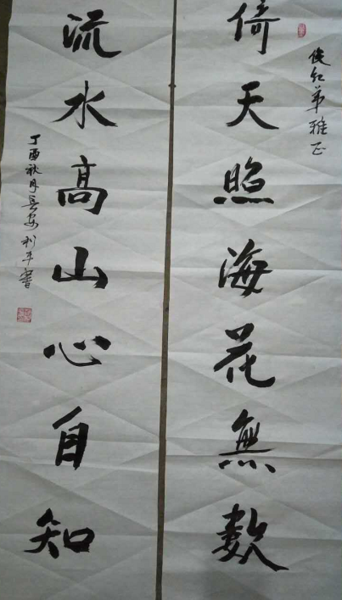 俊红弟雅正
倚天照海花無數
流水高山心自知
丁酉秋月長安利平書